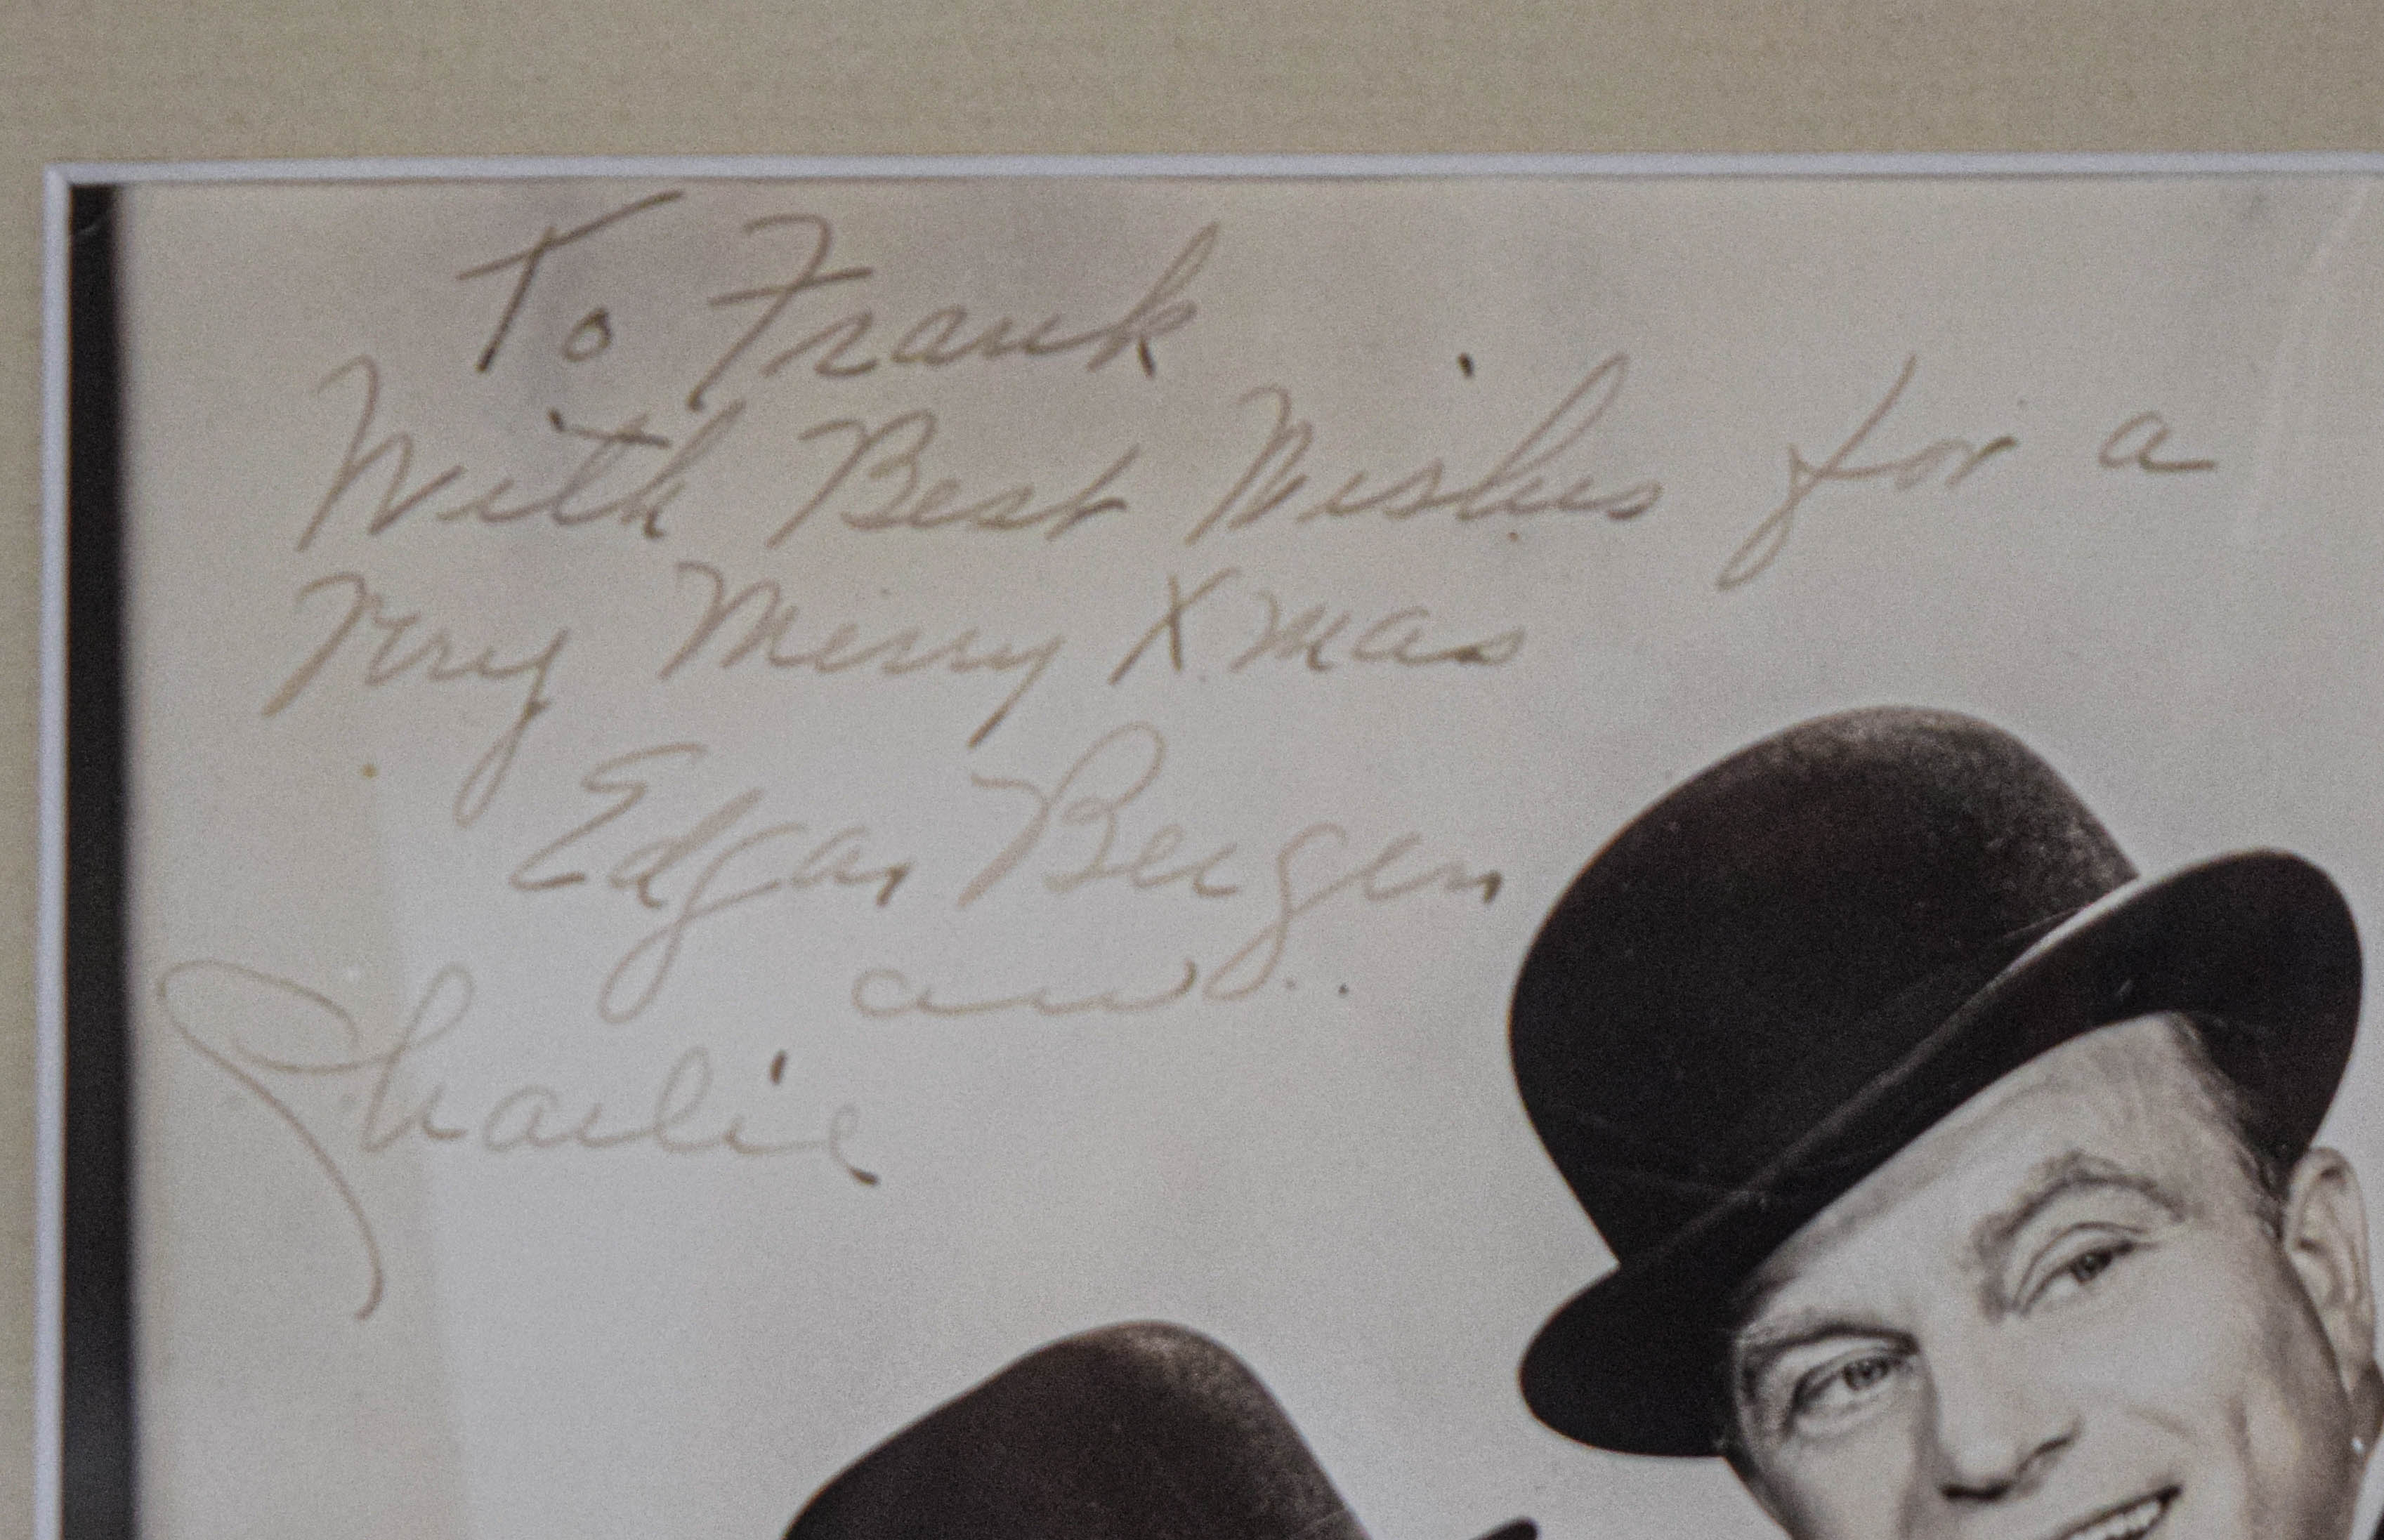 To Frank
With Best Wishes for a
Very Merry Xmas
Edgar Bergen
and
Charlie